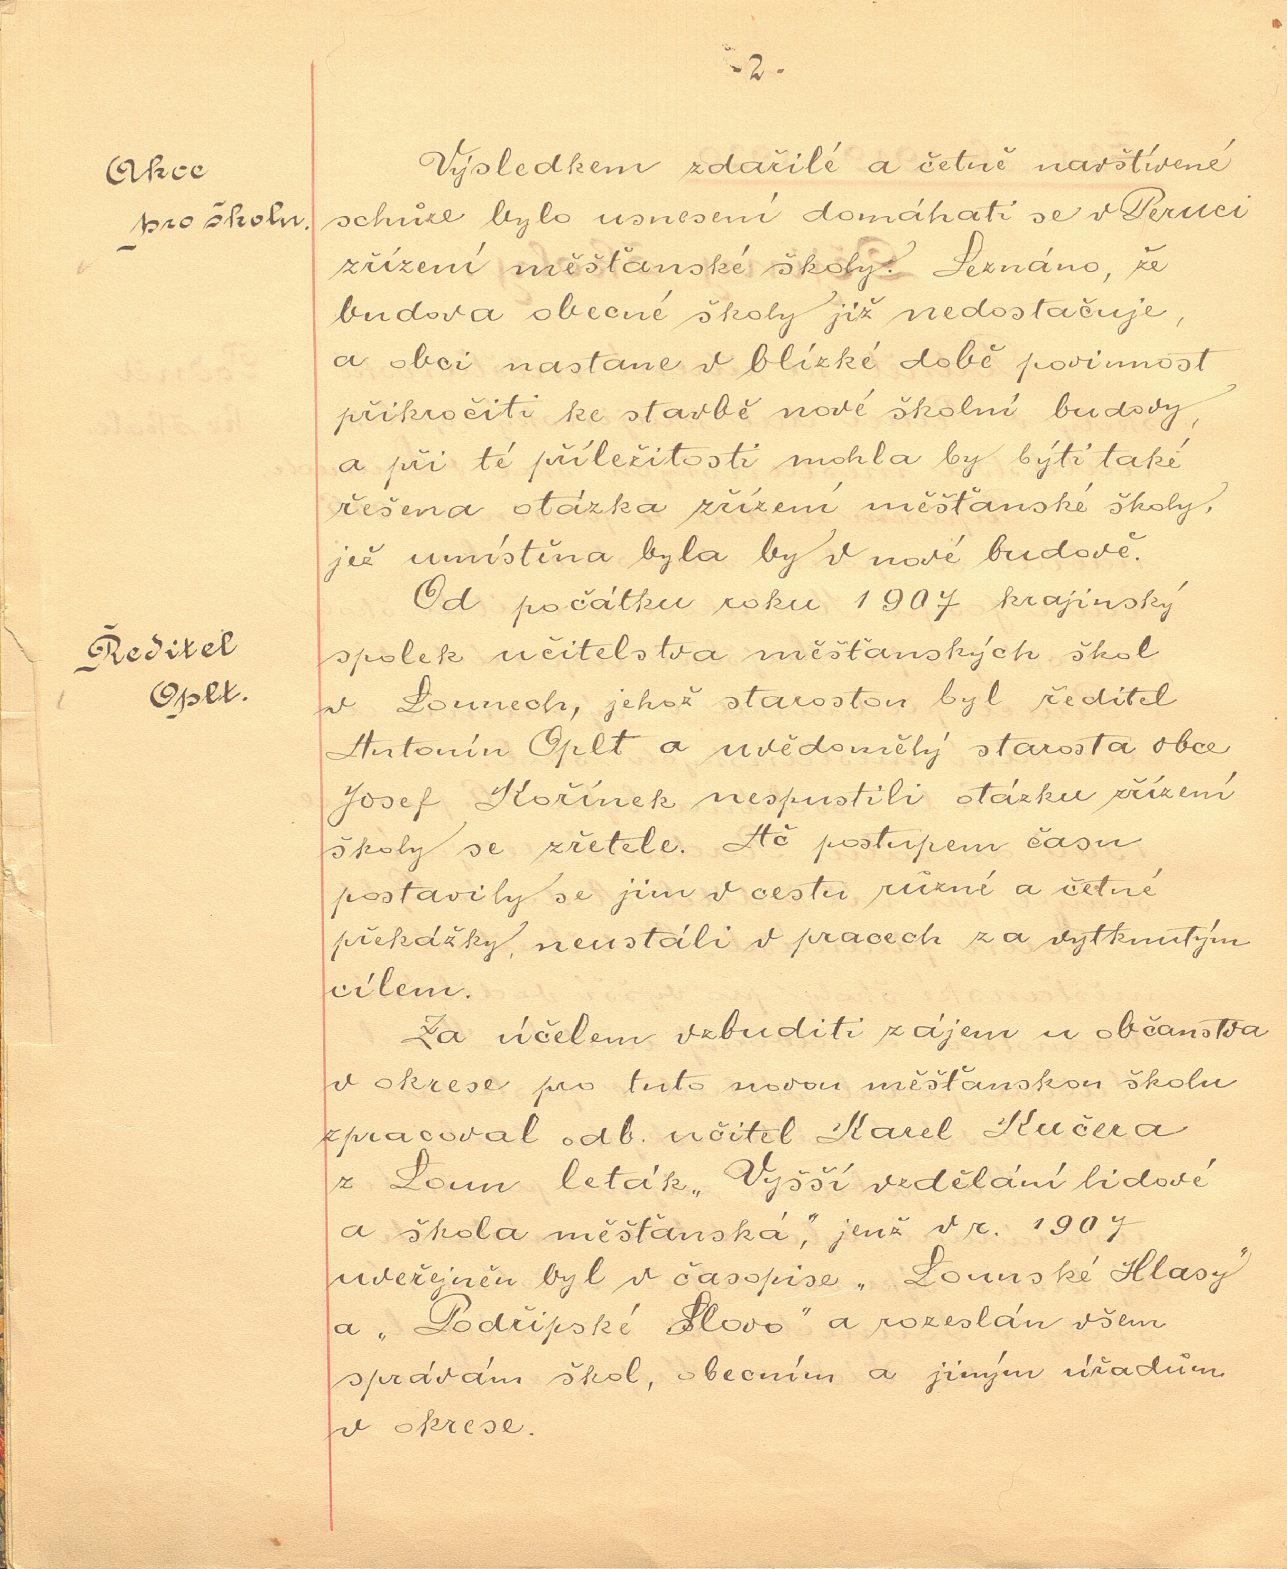 -2-
Akce
pro školu.
Výsledkem zdařilé a četně navštívené
schůze bylo usnesení domáhati se v Peruci
zřízení měšťanské školy. Seznáno, že
budova obecné školy již nedostačuje,
a obci nastane v blízké době povinnost
přikročiti ke stavbě nové školní budovy,
a při té příležitosti mohla by býti také
řešena otázka zřízení měšťanské školy,
jež umístěna byla by v nové budově.
Ředitel
Oplt.
Od počátku roku 1907 krajinský
spolek učitelstva měšťanských škol
v Lounech, jehož starostou byl ředitel
Antonín Oplt a uvědomělý starosta obce
Josef Kořínek nespustili otázku zřízení
školy se zřetele. Ač postupem času
postavily se jim v cestu různé a četné
překážky, neustáli v pracech za vytknutým
cílem.
Za účelem vzbuditi zájem u občanstva
v okrese pro tuto novou měšťanskou školu
zpracoval odb. učitel Karel Kučera
z Loun leták „Vyšší vzdělání lidové
a škola měšťanská“, jenž v r. 1907
uveřejněn byl v časopise „Lounské Hlasy“
a „Podřipské Slovo“ a rozeslán všem
správám škol, obecním a jiným úřadům
v okrese.